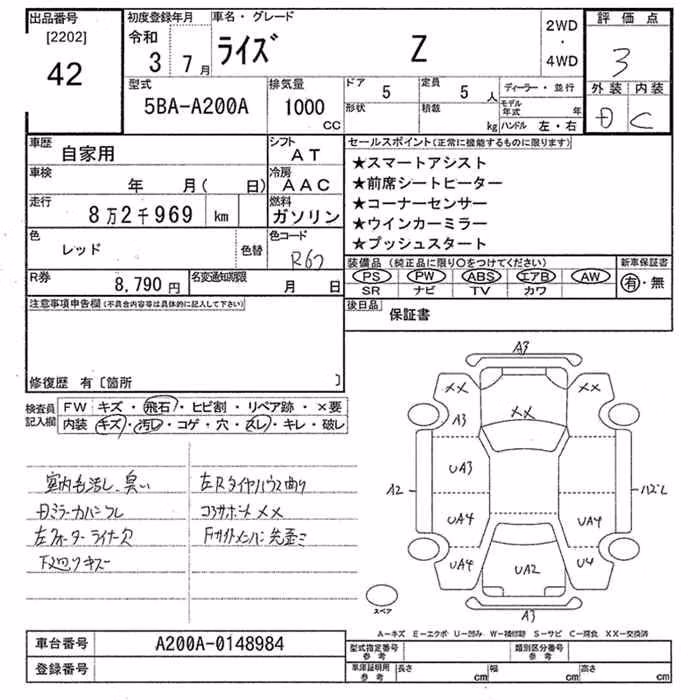 出品番号
[2202]
42
初度登録年月
令和
3 7月
車名・グレード
ライズ Z
2WD
・
4WD
評価点
3
外装 内装
D C
型式
5BA-A200A
排気量
1000
CC
ドア
5
形状
定員
5 人
積載
kg
ディーラー・並行
モデル年式 年
ハンドル 左・右
車歴
自家用
シフト
AT
車検
年 月( 日)
冷房
AAC
走行
8万2千969 km
燃料
ガソリン
色
レッド
色替
色コード
R67
R券
8,790円
名変通知期限
月 日
セールスポイント(正常に機能するものに限ります)
★スマートアシスト
★前席シートヒーター
★コーナーセンサー
★ウインカーミラー
★プッシュスタート
装備品 (純正品に限り〇をつけてください)
PS PW ABS エアB AW
SR ナビ TV カワ
新車保証書
有・無
後日品
保証書
注意事項申告欄(不具合内容等は具体的に記入して下さい)
修復歴 有〔箇所 〕
検査員
記入欄
FW キズ・飛石・ヒビ割・リペア跡・×要
内装 キズ・汚レ・コゲ・穴・スレ・キレ・破レ
室内毛活し、臭い
左Rタイヤハウス曲り
コアサポート XX
左フォーターライナー欠
F下廻りキズ
A3
XX XX
A3 XX
UA3
A2 ハズレ
UA4 UA4
UA4 UA2 U4
A3
スペア
A-キズ E-エクボ U-凹み W-補修跡 S-サビ C-腐食 XX-交換済
車台番号 A200A-0148984
登録番号
型式指定番号
参考
類別区分番号
参考
車庫証明用
参考
長さ cm 幅 cm 高さ cm